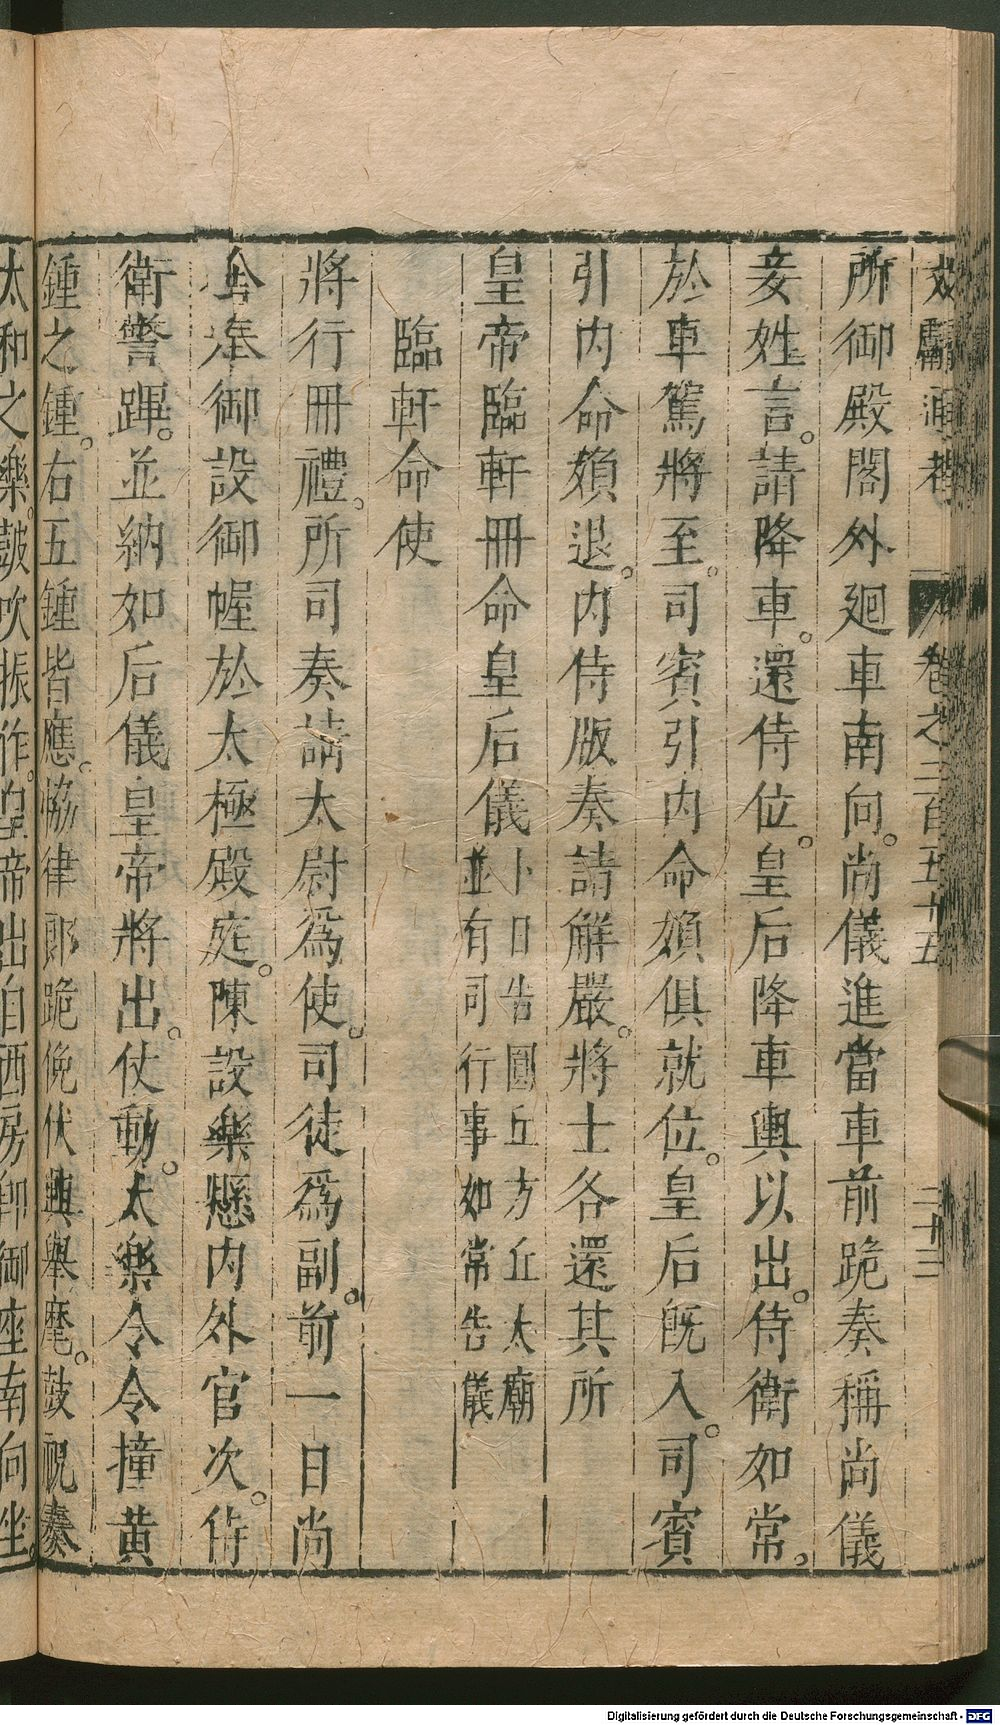 文獻通考　卷之二百五十五　二十三
所御殿閣外廻車南向。尚儀進當車前跪奏稱尚儀
妾姓言。請降車。還侍位。皇后降車輿以出。侍衛如常。
於車駕將至。司賓引內命婦俱就位。皇后既入。司賓
引內命婦退。內侍版奏請解嚴。將士各還其所
皇帝臨軒冊命皇后儀卜日告圓丘方丘太廟並有司行事如常告儀
臨軒命使
將行冊禮。所司奏請太尉爲使。司徒爲副。前一日尚
舍奉御設御幄於太極殿庭。陳設樂懸內外官次。侍
衛警蹕。並納如后儀皇帝將出。仗動。太樂令令撞黃
鍾之鍾。右五鍾皆應。協律郎跪俛伏興舉麾。鼓柷奏
太和之樂。鼓吹振作。皇帝出自西房卽御座南向坐。
Digitalisierung gefördert durch die Deutsche Forschungsgemeinschaft - DFG